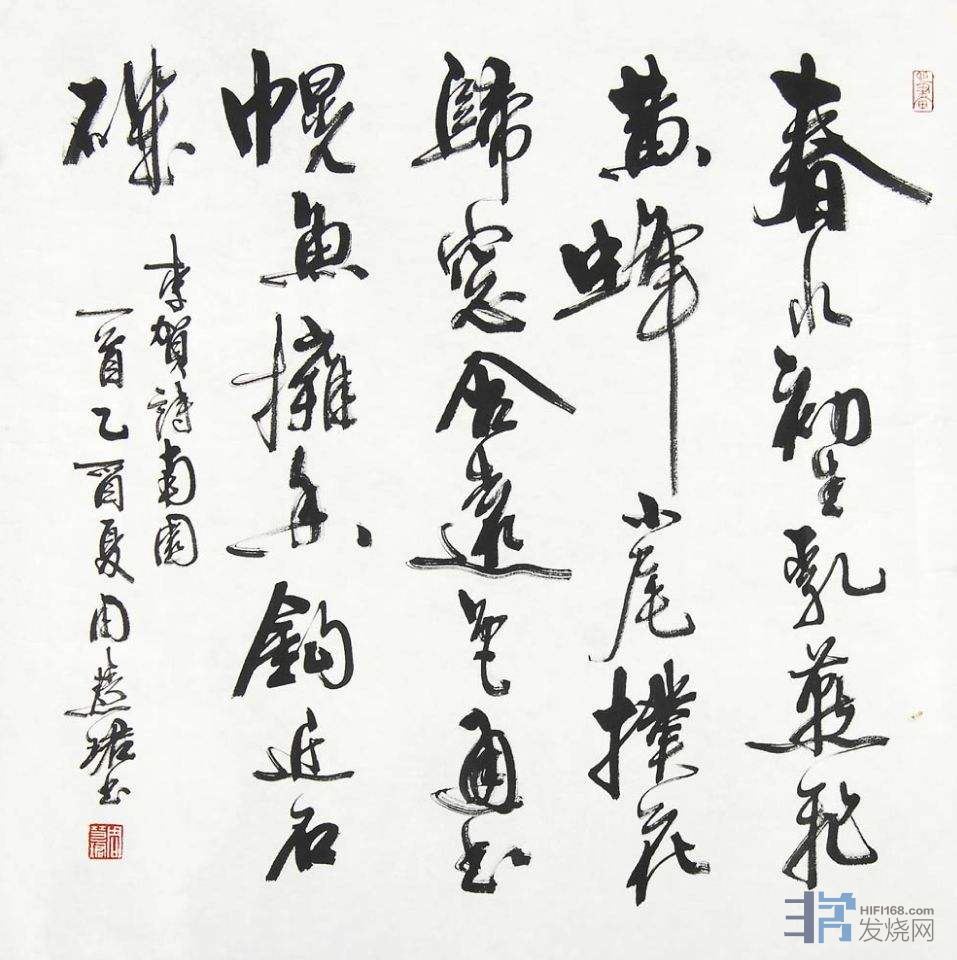 春水初生乳燕飛
黄蜂小尾撲花
歸窓含遠色通書
幌魚擁香鈎近石
磯
李賀詩南園
一首乙酉夏周慧珺書
HIFI168.com
发烧网